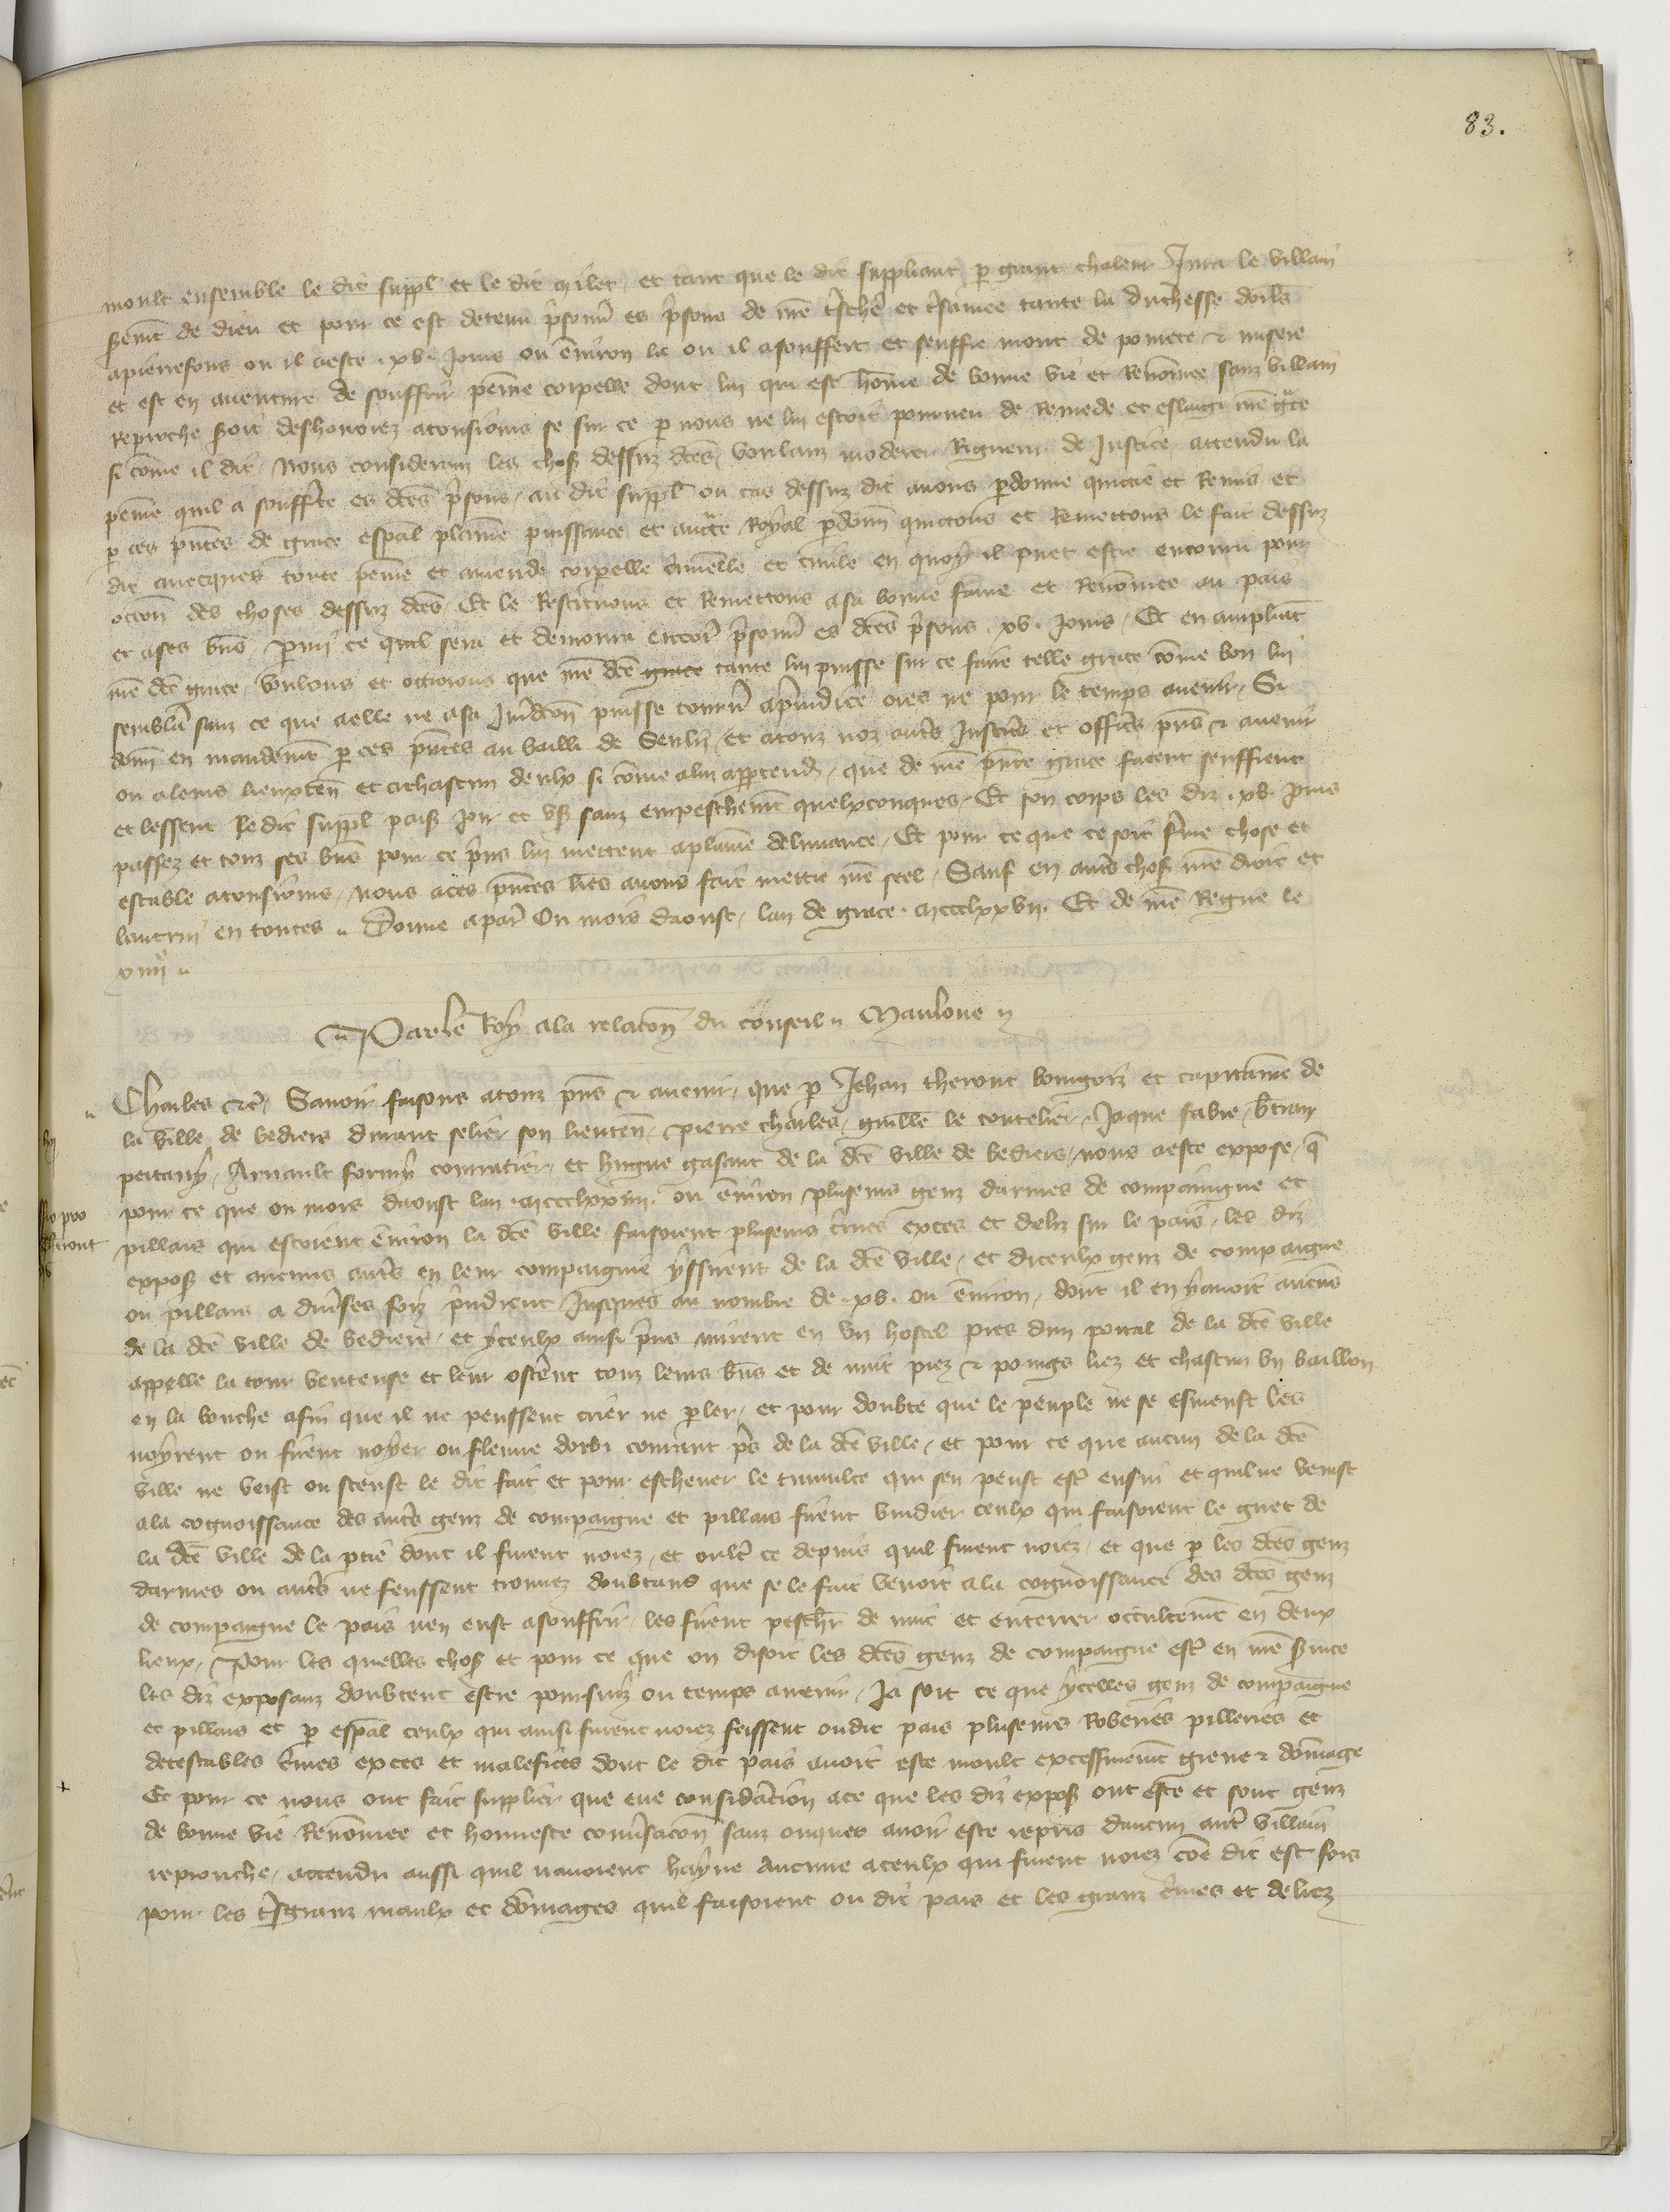 83.
moult ensemble le dit suppl̄ et le dit Milet et tant que le dit suppliant p̱ grant chaleur Jura le villain
serem̄t de dieu et pour ce est detenu p̓sonn̓ es p̓sons de n̄re t̓schē et t̓samee tante la duchesse dorl̄s
a pierrefons ou il a este .xv. jours ou env̓iron la ou il a souffert et seuffre mont de povrete ⁊ misere
et est en aventure de souffrir peinne corpelle dont lui qui est hōme de bonne vie et Renōmee sanz villain
Reproche soit deshonorez a tousiours se sur ce p̱ nous ne lui estoit pourveu de Remede et eslargi n̄re gr̄ce
si cōme il dit, Nous considerans les choses dessuz dc̄es, voulanz moderer Rigueur de Justice, attendu la
peinne quil a soufferte es dc̄es p̓sons, au dit suppl̄ ou cas dessuz dit avons p̱donne quictie et Remis et
p̱ ces pn̄tes de grace esp̄al plainne puissance et auct̄e Royal p̱donn̄ quictons et Remettons le fait dessuz
dit avecques toute peinne et amende corporelle c̓minelle et civile en quoy il puet estre encouru pour
occōn des choses dessuz dc̄es, Et le Restituons et Remettons a sa bonne fame et Renōmee au pais
et a ses biens, p̱mi ce quil sera et demourra encor̓ p̓sonn̓ es dc̄es p̓sons .xv. jours, Et en ampliant
n̄re dc̄e grace, voulons et ottroions que n̄re dc̄e grace tante lui puisse sur ce faire telle grace cōme bon lui
semblera sanz ce que a elle ne a sa Jur̓dc̄on puisse tourn̓ a p̓iudice ores ne pour le temps avenir, Si
donn̄ en mandem̄t p̱ ces pn̄tes au bailli de Senliz, et a touz noz aut̓s Justic̓s et offic̓s pn̄s ⁊ avenir
ou a leurs lieuxten̄ et a chascun deulx si cōme a lui appartendr̓, que de n̄re pn̄te grace facent seuffrent
et lessent le dit suppl̄ paisib̄ joir et user sanz empeschem̄t quelxconques, Et son corps les diz .xv. jours
passez et touz ses biens pour ce p̓ns lui mettent a plainne delivrance, Et pour ce que ce soit ferme chose et
estable a tousiours, nous a ces pn̄tes l̄res avons fait mettre n̄re seel, Sauf en aut̓s choses n̄re droit et
lautrui en toutes. Donne a par̓ Ou mois daoust, lan de grace .mccclxxvii. Et de n̄re Regne le
xiiiie.
Par le Roy a la relacōn du conseil. Maulone
Charles ⁊c̄, Savoir faisons a touz pn̄s ⁊ avenir, que p̱ Jehan theront bourgois et capitainne de
la ville de bediers durant selier son lieuten̄, Pierre charles, guill̄e le coutelier, Jaque fabre, B̄tran
peitavy, Arnault formy courratier, et hugue gasant de la dc̄e ville de bediers, nous a este expose, q̄
pour ce que ou mois daoust lan .mccclxxiiii. ou env̓iron pluseurs genz darmes de compaingne et
pillars qui estoient env̓iron la dc̄e ville faisoient pluseurs c̓mes exces et deliz sur le pais, les diz
expos̄ et aucuns aut̓s en leur compaignie yssirent de la dc̄e ville, et diceulx genz de compaigne
ou pillars a div̓ses foiz p̓ndrent Jusques au nombre de .xv. ou env̓iron, dont il en y avoit aucūs
de la dc̄e ville de bediers, et yceulx ainsi p̓ns mirent en un hostel pres dun portal de la dc̄e ville
appelle la tour ventouse et leur osterent touz leurs biens et de nuit piez ⁊ poings liez et chascun un baillon
en la bouche afin que il ne peussent crier ne p̱ler, et pour doubte que le peuple ne se esmeust les
noyrent ou firent noyer ou fleuve dorbi courant p̓s de la dc̄e ville, et pour ce que aucun de la dc̄e
ville ne veist ou sceust le dit fait et pour eschever le tumulte qui sen peust est̓ ensui et quil ne venist
a la cognoissance des aut̓s genz de compaigne et pillars firent vuidier ceulx qui faisoient le guet de
la dc̄e ville de la p̱tie dont il furent noiez, et oult̓ ce depuis quil furent noiez, et que p̱ les dc̄es genz
darmes ou aut̓s ne feussent trouvez doubtans que se le fait venoit a la cognoissance des dc̄es genz
de compaigne le pais nen eust a souffrir, les firent peschier de nuit et enterrer occultem̄t en deux
lieux, Pour les quelles choses et pour ce que on disoit les dc̄es genz de compaigne est̓ en n̄re s̓vice
les diz exposanz doubtent estre poursuiz ou temps avenir, Ja soit ce que ycelles genz de compaigne
et pillars et p̱ esp̄al ceulx qui ainsi furent noiez feissent ou dit pais pluseurs Roberies pilleries et
detestables c̓mes exces et malefices dont le dit pais avoit este moult excessivem̄t greve ⁊ dōmage
Et pour ce nous ont fait supplier que eue considerac̄ion a ce que les diz expos̄ ont este et sont genz
de bonne vie Renōmee et honneste conv̓sacōn sanz onques avoir este repris daucun aut̓ villain
reprouche, attendu aussi quil navoient hayne aucune a ceulx qui furent noiez cōe dit est fors
pour les t̓sgranz maulx et dōmages quil faisoient ou dit pais et les granz c̓mes et deliez